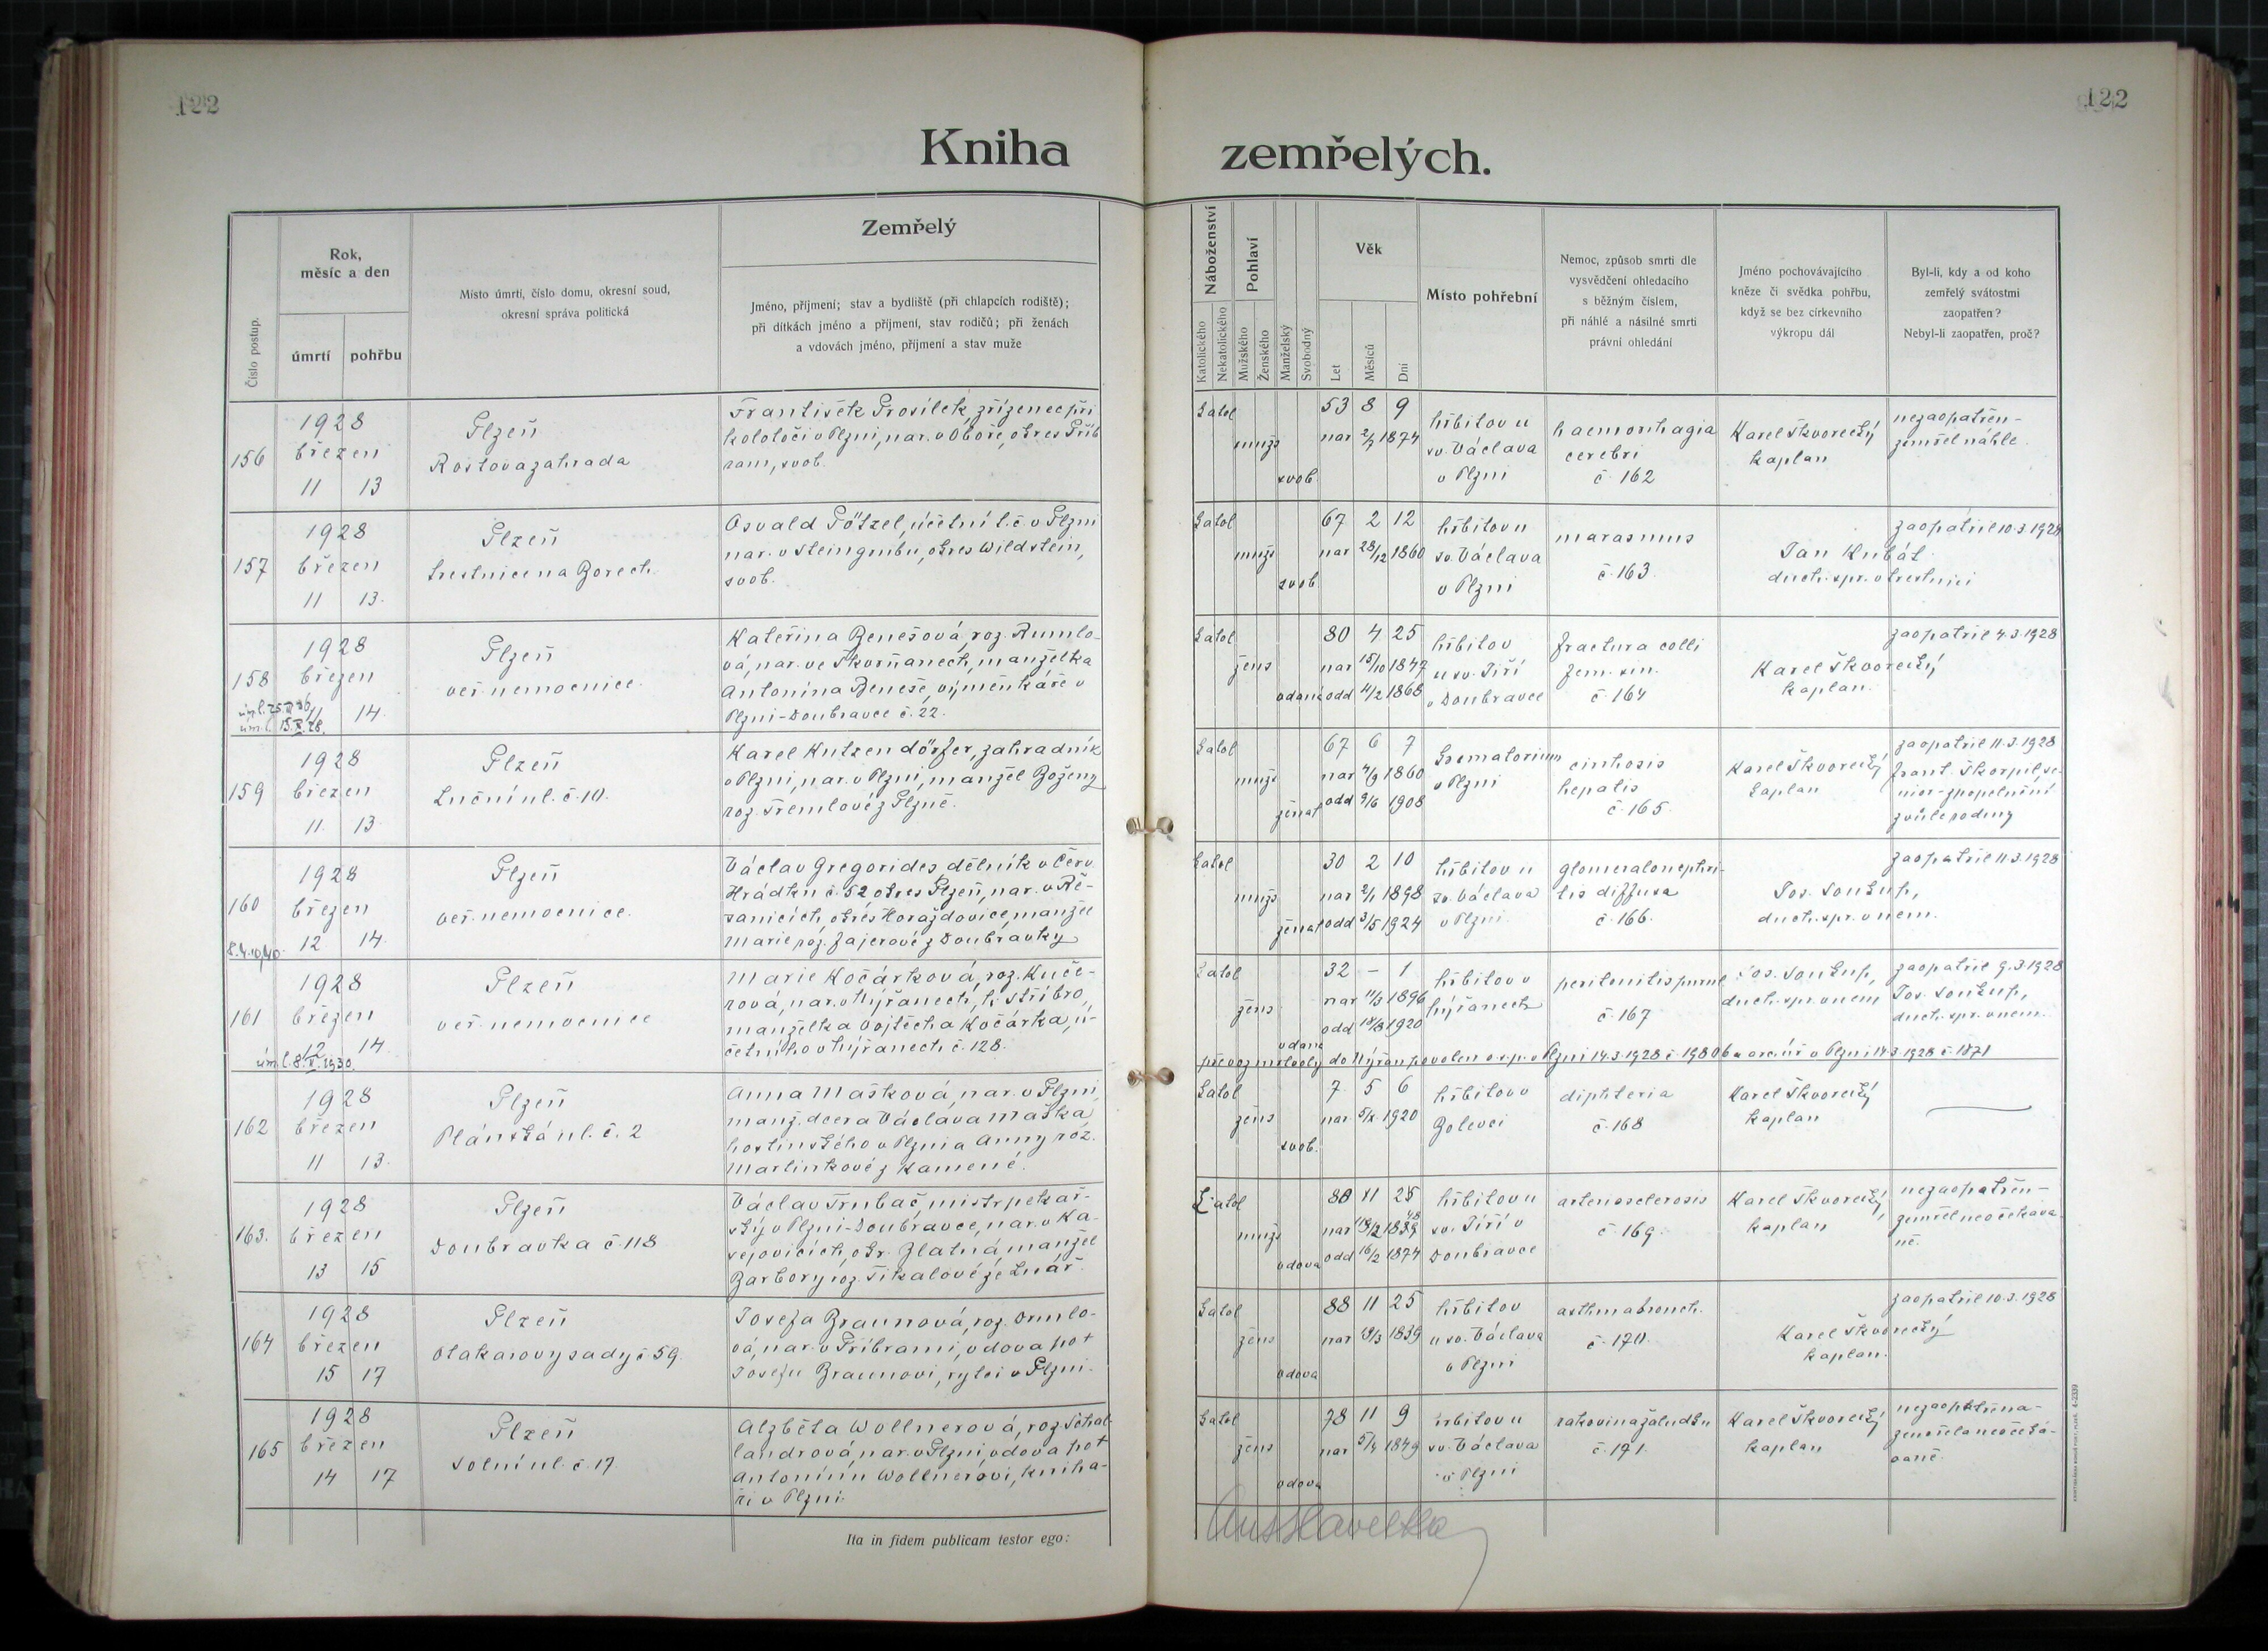 122
122
Kniha
zemřelých.
Číslo postup.
Rok,
měsíc a den
úmrtí
pohřbu
Místo úmrtí, číslo domu, okresní soud,
okresní správa politická
Zemřelý
Jméno, příjmení; stav a bydliště (při chlapcích rodiště);
při dítkách jméno a příjmení, stav rodičů; při ženách
a vdovách jméno, příjmení a stav muže
Náboženství
Katolického
Nekatolického
Pohlaví
Mužského
Ženského
Manželský
Svobodný
Věk
Let
Měsíců
Dní
Místo pohřební
Nemoc, způsob smrti dle
vysvědčení ohledacího
s běžným číslem,
při náhlé a násilné smrti
právní ohledání
Jméno pochovávajícího
kněze či svědka pohřbu,
když se bez církevního
výkropu dál
Byl-li, kdy a od koho
zemřelý svátostmi
zaopatřen?
Nebyl-li zaopatřen, proč?
156
1928
březen
11 13
Plzeň
Rostova zahrada
František Prosílek, zřízenec při
kolotoči v Plzni, nar. v Oboře, okres Příb
ram, svob.
katol
mužs
svob.
53 8 9
nar 2/7 1874
hřbitov u
sv. Václava
v Plzni
haemorrhagia
cerebri
č. 162
Karel Škvorecký
kaplan
nezaopatřen -
zemřel náhle.
157
1928
březen
11 13.
Plzeň
trestnice na Borech.
Osvald Pötzel, účetní t.č. v Plzni
nar. v Steingrubu, okres Wildstein,
svob.
katol
mužs
svob.
67 2 12
nar 28/12 1860
hřbitov u
sv. Václava
v Plzni
marasmus
č. 163.
Jan Kubát
duch. spr. v trestnici
zaopatřil 10.3.1928
158
1928
březen
11 14.
úm.l. 15.X.28.
Plzeň
veř. nemocnice.
Kateřina Benešová, roz. Rumlo-
vá, nar. ve Škvrňanech, manželka
Antonína Beneše, výměnkáře v
Plzni-Doubravce č. 22.
katol
žens
vdaná
80 4 25
nar 15/10 1847
odd 11/2 1868
hřbitov
u sv. Jiří
v Doubravce
fractura colli
fem. sin.
č. 164
Karel Škvorecký
kaplan.
zaopatřil 4.3.1928
159
1928
březen
11. 13
Plzeň
Luční ul. č. 10.
Karel Kutzendörfer, zahradník
v Plzni, nar. v Plzni, manžel Boženy
roz. Tremlové z Plzně.
katol
mužs
ženat
67 6 7
nar 4/9 1860
odd 9/6 1908
krematorium
v Plzni
cirrhosis
hepatis
č. 165
Karel Škvorecký
kaplan
zaopatřil 11.3.1928
Frant. Škorpil, se-
nior - zpopelnění
z vůle rodiny
160
1928
březen
12 14.
Plzeň
veř. nemocnice.
Václav Gregorides, dělník v Červ.
Hrádku č. 52 okres Plzeň, nar. v Ře-
sanicích, okres Horažďovice, manžel
Marie roz. Fajerové z Doubravky
katol
mužs
ženat
30 2 10
nar 2/1 1898
odd 3/5 1924
hřbitov u
sv. Václava
v Plzni
glomeralonephri-
tis diffusa
č. 166.
Jos. Soukup,
duch. spr. v nem.
zaopatřil 11.3.1928
161
1928
březen
12 14.
úm.l. 8.V.1930.
Plzeň
veř. nemocnice
Marie Kočárková, roz. Kuče-
rová, nar. v Nýřanech, h. Stříbro,
manželka Vojtěcha Kočárka, ú-
četního v Nýřanech č. 128.
katol
žens
vdaná
32 – 1
nar 11/3 1896
odd 18/8 1920
hřbitov v
Nýřanech
peritonitis purul
č. 167
Jos. Soukup,
duch. spr. v nem
zaopatřil 9.3.1928
Jos. Soukup,
duch. spr. v nem.
převoz mrtvoly do Nýřan povolen o.s.p. v Plzni 14.3.1928 č. 19806 a arc. úř v Plzni 14.3.1928 č. 1871
162
1928
březen
11 13.
Plzeň
Plánská ul. č. 2
Anna Mašková, nar. v Plzni,
manž. dcera Václava Maška
hostinského v Plzni a Anny roz.
Martinkové z Kamené.
katol
žens
svob.
7 5 6
nar 5/X 1920
hřbitov v
Bolevci
diphteria
č. 168
Karel Škvorecký
kaplan
163.
1928
březen
13 15
Plzeň
Doubravka č. 118
Václav Trubač, mistr pekař-
ský v Plzni-Doubravce, nar. v Ka-
sejovicích, okr. Blatná, manžel
Barbory roz. Šikalové ze Lnář.
katol
mužs
vdova
80 XI 25
odd 16/2 1874
hřbitov u
sv. Jiří v
Doubravce
arteriosclerosis
č. 169.
Karel Škvorecký
kaplan
nezaopatřen -
zemřel neočekava-
ně.
164
1928
březen
15 17
Plzeň
Otakarovy sady č 59.
Josefa Braunová, roz. Ormlo-
vá, nar. v Příbrami, vdova po †
Josefu Braunovi, rytci v Plzni.
katol
žens
vdova
88 11 25
nar 19/3 1839
hřbitov
u sv. Václava
v Plzni
asthma bronch.
č. 170.
Karel Škvorecký
kaplan.
zaopatřil 10.3.1928
165
1928
březen
14 17
Plzeň
Solní ul. č. 17.
Alžběta Wollnerová, roz. Schal-
landrová, nar. v Plzni, vdova po †
Antonínu Wollnerovi, kniha-
ři v Plzni.
katol
žens
vdova
78 11 9
nar 5/4 1849
hřbitov u
sv. Václava
v Plzni
rakovina žaludku
č. 171.
Karel Škvorecký
kaplan
nezaopatřena -
zemřela neočeká-
vaně.
Ita in fidem publicam testor ego: